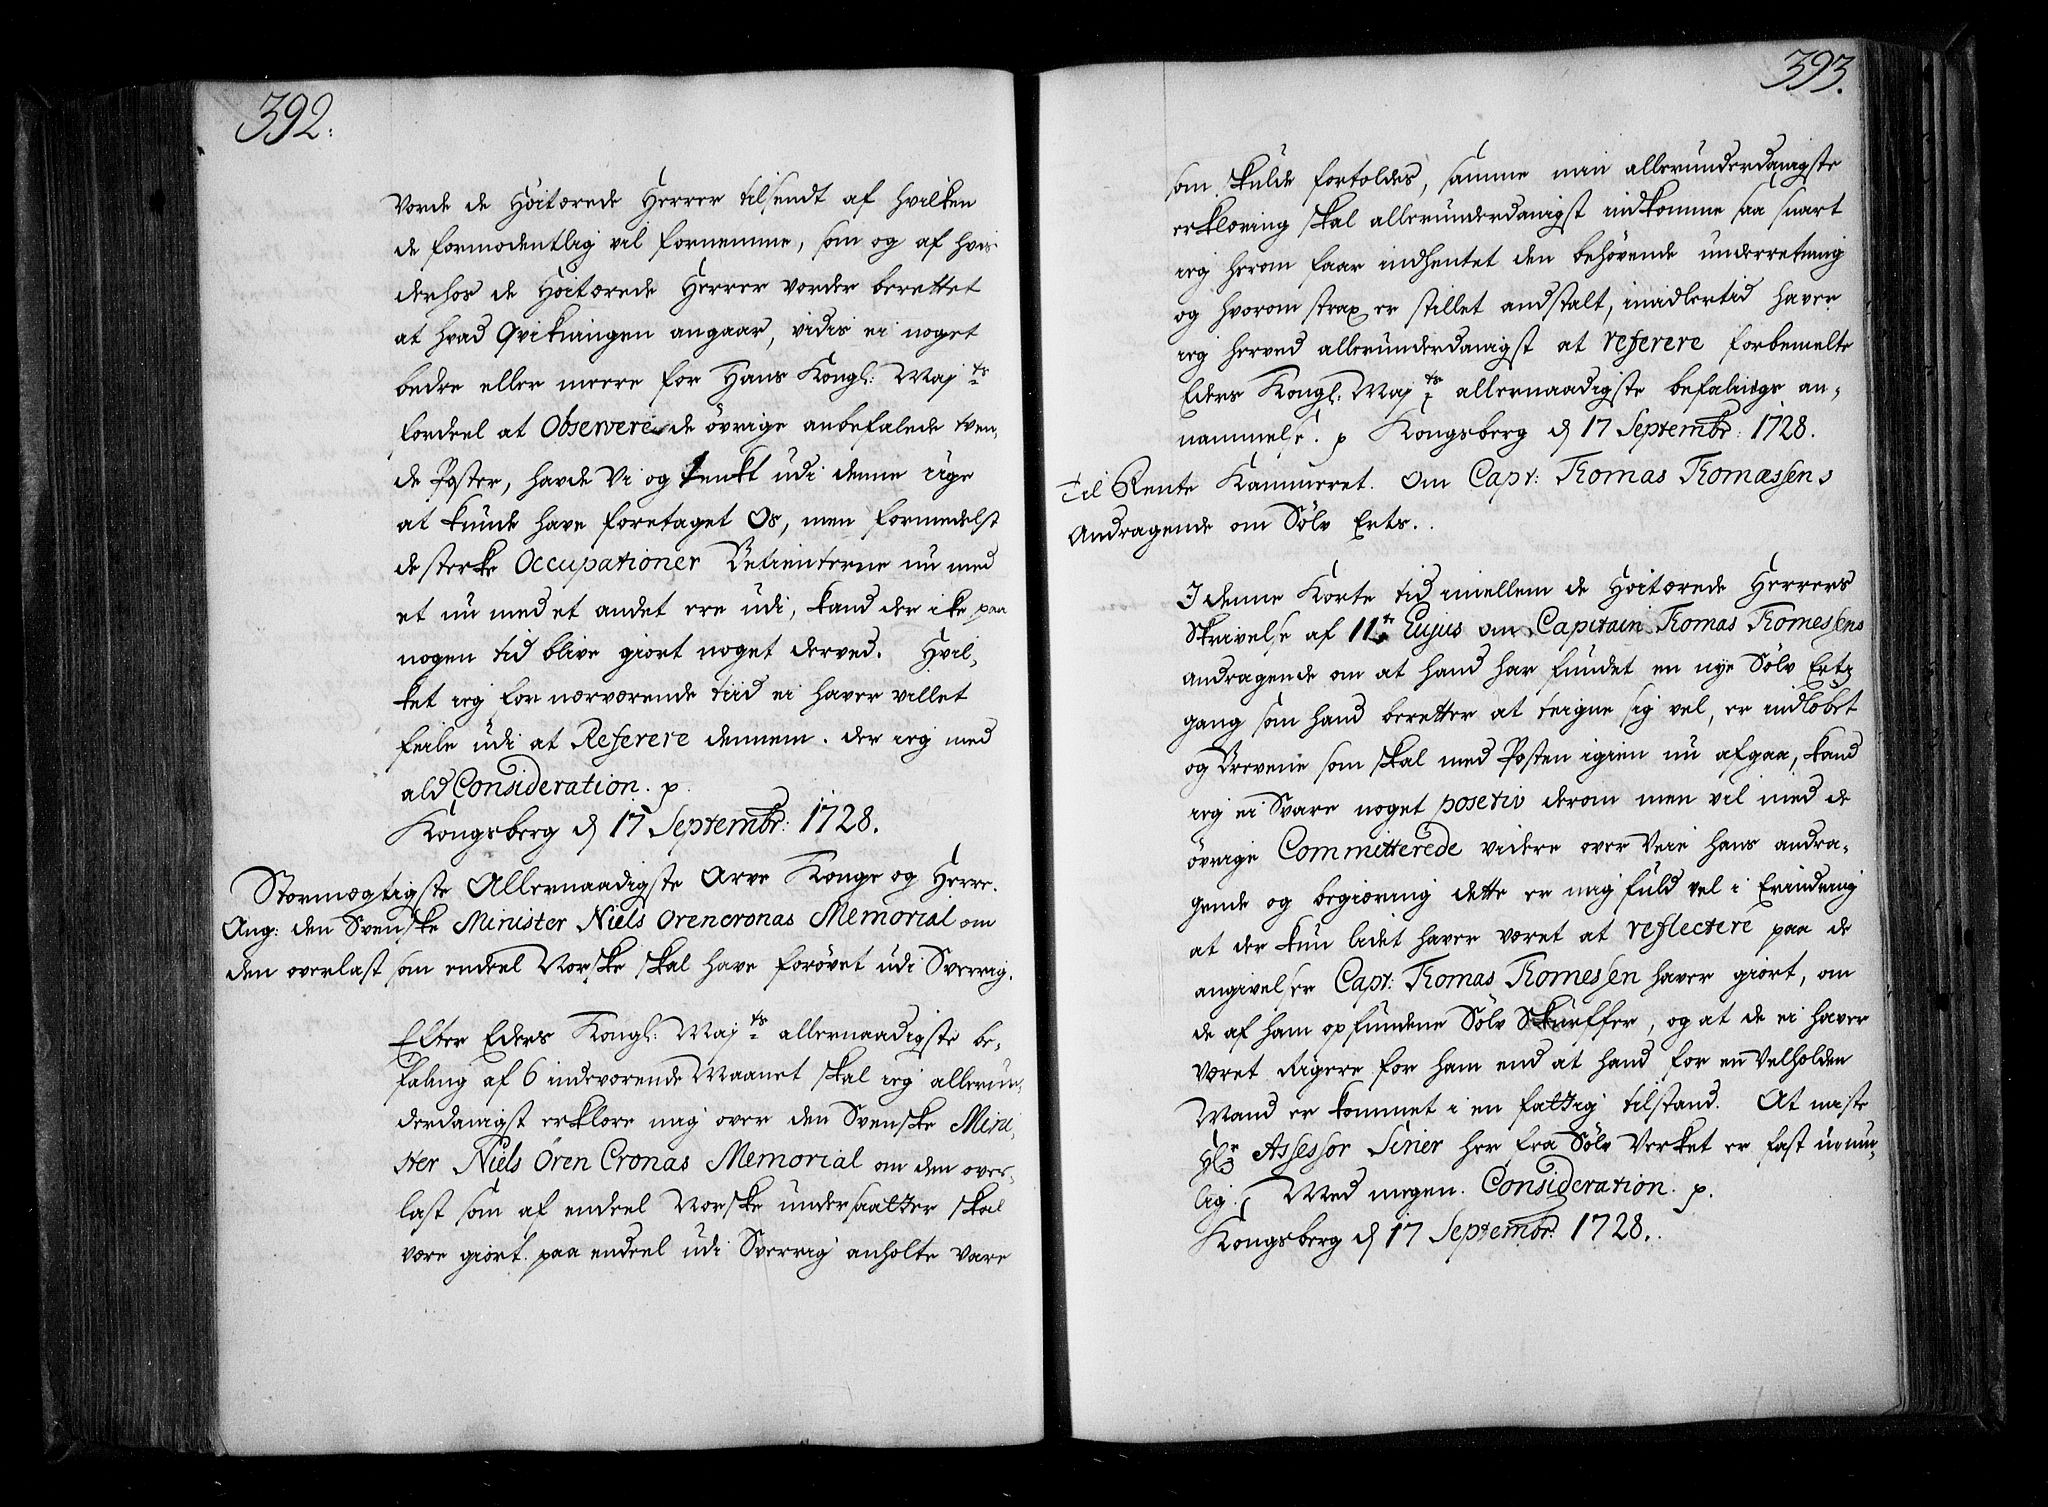 392.
Vorde de Høitærede Herrer tilsendt af hvilken
de formodentlig vil fornemme, som og af hvis
derhos de Høitærede Herrer vorder berettet
at hvad Qvikningen angaar, vidis ei noget
bedre eller meere for Hans Kongl: Maj:ts
fordeel at Observere de øvrige anbefalede tven,
de Poster, havde Vi og tenkt udi denne uge
at kunde have foretaget Os, men formedelst
de sterke Occupationer Betienterne nu med
et nu med et andet ere udi, kand der ike paa
nogen tid blive giort noget derved. Hvil,
ket ieg for nærværende tiid ei haver villet
feile udi at Referere dennem. der ieg med
ald Consideration. p.
Kongsberg d 17 Septembr: 1728.
Stormægtigste Allernaadigste Arve Konge og Herre.
Ang: den Svenske Minister Niels Orencronas Memorial om
den overlast som endeel Norske skal have forøvet udi Sverrig.
Efter Eders Kongl: Maj:ts allernaadigste be,
faling af 6 indeværende Maanet skal ieg allerun,
derdanigst erklære mig over den Svenske Mini,
ster Niels Ören Cronas Memorial om den over,
last som af endeel Norske undersaatter skal
være giort paa endeel udi Sverrig anholte Vare
393.
som skulde fortoldes, samme min allerunderdanigste
erklæring skal allerunderdanigst indkomme saa snart
ieg herom faar indhentet den behøvende underretning
og hvorom strax er stillet andstalt, imidlertid haver
ieg herved allerunderdanigst at referere forbemelte
Eders Kongl: Maj:ts allernaadigste befalings an,
nammelse. p Kongsberg d 17 Septembr: 1728.
Til Rente Kammeret. Om Capt: Thomas Thomassens
Andragende om Sølv Erts.
I denne Korte tid imellem de Høitærede Herrers
Skrivelse af 11te Eujus om Capitain Thomas Thomessens
andragende om at hand har fundet en nye Sølv Ertz
gang som hand beretter at teigne sig vel, er indløbet
og Brevene som skal med Posten igien nu afgaa, kand
ieg ei Svare noget posetiv derom men vil med de
øvrige Committerede videre over Veie hans andra,
gende og begiæring dette er mig fuld vel i Erindring
at der kun lidet haver været at reflectere paa de
angivelser Capt: Thomas Thomessen haver giort, om
de af ham opfundene Sølv Skiueffer, og at de ei haver
været Rigere for ham end at hand for en Velholden
Mand er kommet i en fattig tilstand. At miste
Hr Assessor Tirier her fra Sølv Verket er fast umu,
lig. Med megen Consideration. p.
Kongsberg d 17 Septembr: 1728.